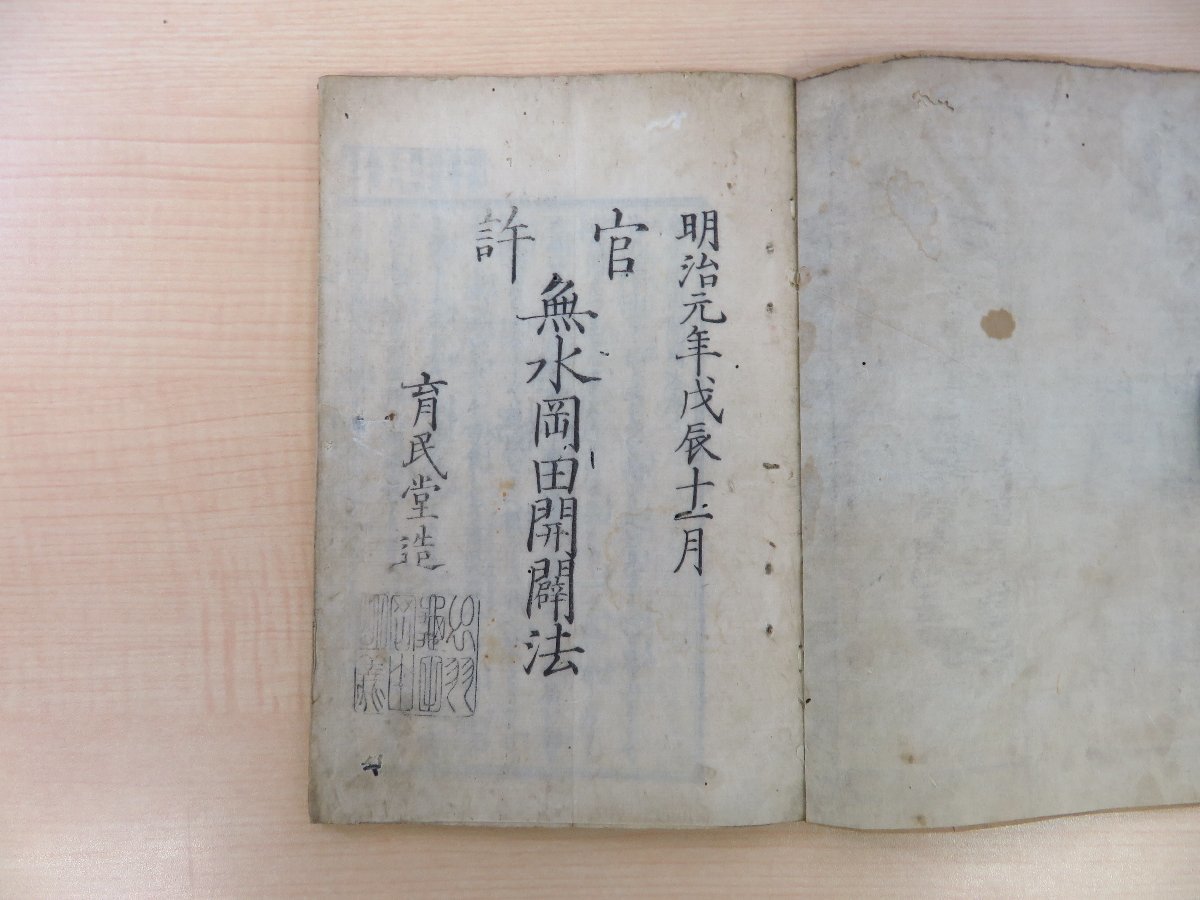 明治元年戊辰十二月
官許
無水岡田開闢法
育民堂造